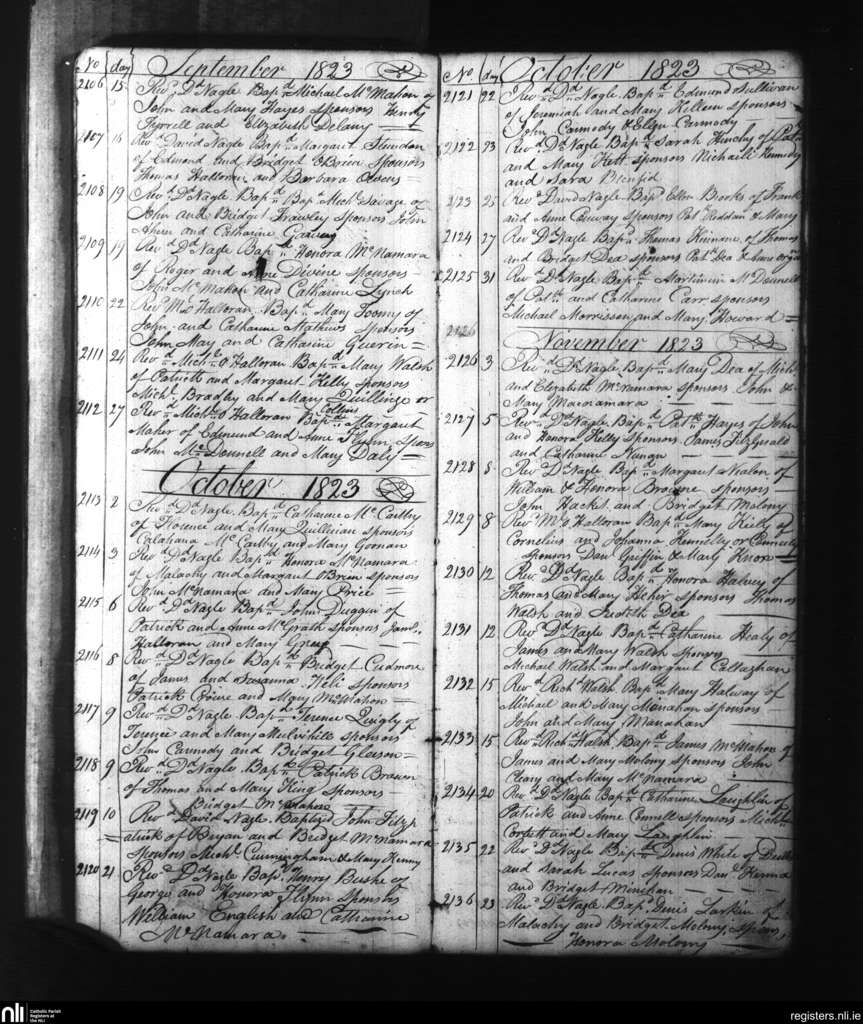 No day September 1823
2106 15 Revd. Dd. Nagle Bapd. Michael McMahon of
John and Mary Hayes sponsors Henry
Thyrrell and Elizabeth Delany
2107 16 Revd David Nagle Bapd. Margaret
of Edmund and Bridget OBrien Sponsors
Thomas Halloran and Barbara
2108 19 Revd. Dd. Nagle Bapd. Michl. Savage of
John and Bridget Frawley Sponsors John
Ahern and Catharine
2109 19 Revd. Dd. Nagle Bapd. Honora McNamara
of Roger and Anne Divine sponsors
John McMahon and Catharine Lynch
2110 22 Revd. Ml. O Halloran Bapd. Mary Toomy of
John and Catharine Mathews Sponsors
John May and Catharine Guerin
2111 24 Revd. Michl. O Halloran Bapd. Mary Walsh
of Patrick and Margaret Kelly sponsors
Michl. Bradly and Mary Quillinge or
Collins
2112 27 Revd. Michl. O Halloran Bapd. Margaret
Maher of Edmund and Anne Flynn, Spons
John McDonnell and Mary Daly
October 1823
2113 2 Revd. Dd. Nagle Bapd. Catharine McCarthy
of Florence and Mary Quillinan sponsors
Calahana McCarthy and Mary Goonan
2114 3 Revd. Dd. Nagle Bapd. Honora McNamara
of Malachy and Margaret OBrien sponsors
John McNamara and Mary Price
2115 6 Revd. Dd. Nagle Bapd. John Duggin of
Patrick and Anne McGrath sponsors Jams.
Halloran and Mary
2116 8 Revd. Dd. Nagle Bapd. Bridget Cudmore
of James and Susanna sponsors
Patrick and Mary McMahon
2117 9 Revd. Dd. Nagle Bapd. Terence Quigly of
Terence and Mary Mulvihile sponsors
John Carmody and Bridget Gleeson
2118 9 Revd. Dd. Nagle Bapd. Patrick Brown
of Thomas and Mary King Sponsors
Bridget McMahon
2119 10 Revd. David Nagle Baptized John Fitzp
atrick of Bryan and Bridget McNamara
Sponsors Michl. Cunningham & Mary Kenny
2120 21 Revd. Dd. Nagle Bapd. Henry Bushe of
George and Honora Flynn Sponsors
William English and Catharine
McNamara.
No. day October 1823
2121 22 Revd. Dd. Nagle Bapd. Edmund Sullivan
of Jeremiah and Mary sponsors
John Carmody & Ellen Carmody
2122 23 Revd. Dd. Nagle Bapd. Sarah of Patk.
and Mary Hett sponsors Michaell Kennedy
and Sara
2123 25 Revd. David Nagle Bapd Ellen Brooks of Frank
and Anne Conway sponsors Patk. Reddan & Mary
2124 27 Revd Dd Nagle Bapd. Thomas Kinnane of Thomas
and Bridget Dea sponsors Patk. Dea & Anne
2125 31 Revd. Dd. Nagle Bapd. Mortimin McDonnell
of Patk. and Catharine Carr sponsors
Michael Morrissey and Mary Howard
2126
November 1823
2126 3 Revd. Dd. Nagle Bapd. Mary Dea of Michl.
and Elizabeth McNamara sponsors John &
Mary Macnamara
2127 5 Revd. Dd. Nagle Bapd. Patk. Hayes of John
and Honora Kelly Sponsors James Fitzgerald
and Catharine
2128 8 Revd Dd Nagle Bapd. Margaret Nealon of
William & Honora Browne sponsors
John Hacket and Bridget Molony
2129 8 Revd. Ml. O Halloran Bapd. Mary Kielly of
Cornelius and Johanna Kennelly or
sponsors Danl Griffin & Marty Knox
2130 12 Revd. Dd. Nagle Bapd. Honora Halvey of
Thomas and Mary Heher Sponsors Thomas
Walsh and Judith Dea
2131 12 Revd. Dd Nagle Bapd. Catharine Healy of
James and Mary Walsh Sponsors
Michael Walsh and Margaret Callaghan
2132 15 Revd. Richd. Walsh Bapd. Mary Halway of
Michael and Mary Monahan sponsors
John and Mary Manahan
2133 15 Revd. Richd. Walsh Bapd. James McMahon of
James and Mary Molony Sponsors John
Cleary and Mary McNamara
2134 20 Revd. Dd Nagle Bapd. Catharine Laughlin of
Patrick and Anne Connell Sponsors Michl.
Corbett and Mary Laughlin
2135 22 Revd. Dd. Nagle Bapd. Denis White of
and Sarah Lucas Sponsors Danl.
and Bridget Minihan
2136 23 Revd. Dd. Nagle Bapd. Denis Larkin of
Malachy and Bridget Molony, Sponsors
Honora Molony
nli
Catholic Parish
Registers at
the NLI
registers.nli.ie